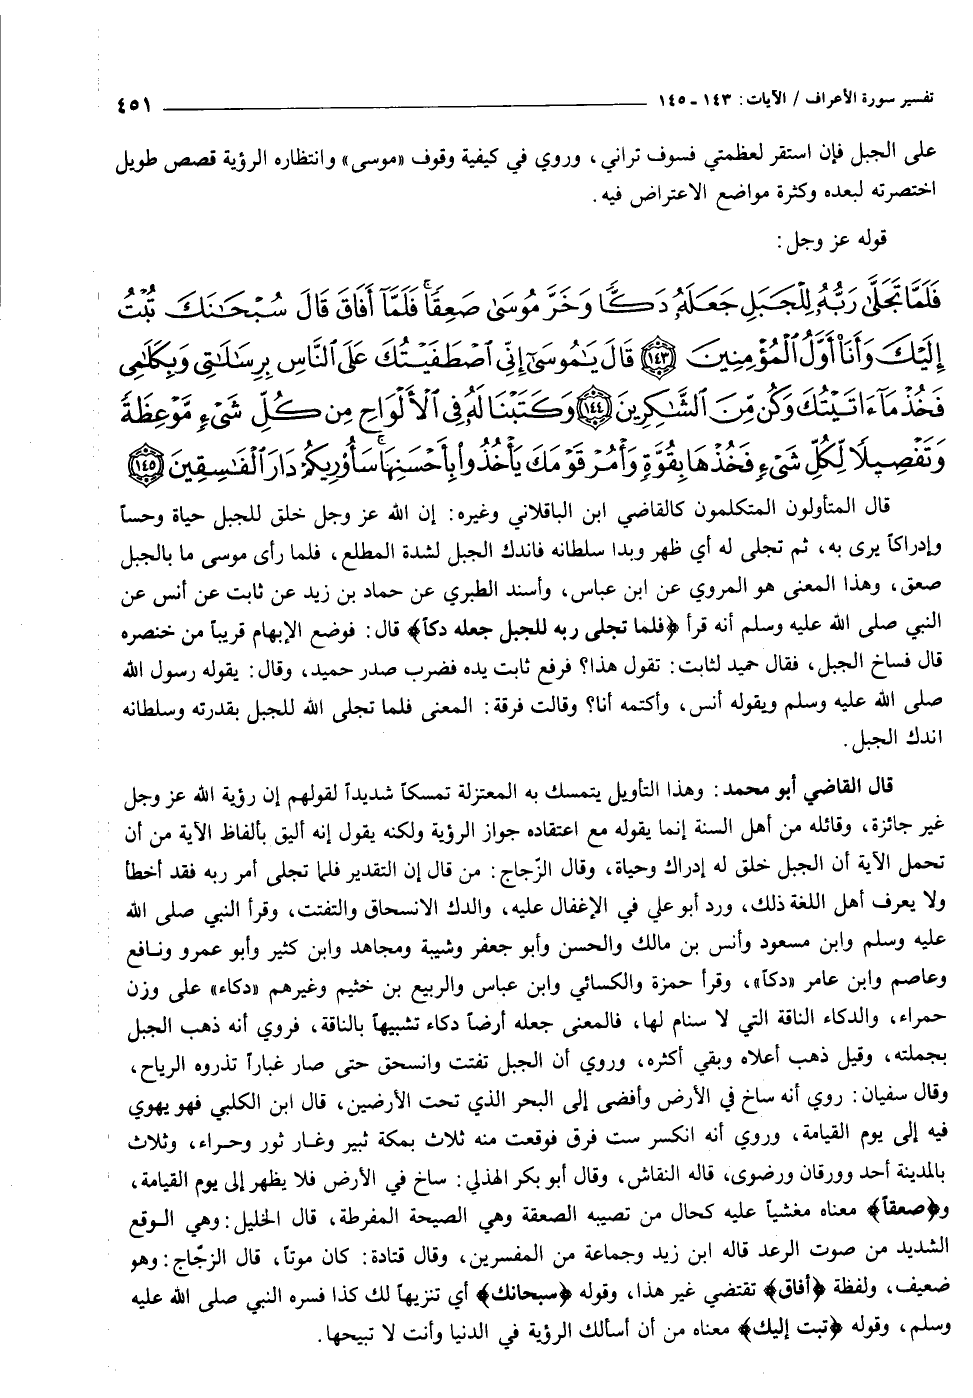 تفسير سورة الأعراف / الآيات: ١٤٣ - ١٤٥ ٤٥١
على الجبل فإن استقر لعظمتي فسوف تراني، وروي في كيفية وقوف «موسى» وانتظاره الرؤية قصص طويل
اختصرته لبعده وكثرة مواضع الاعتراض فيه.
قوله عز وجل:
فَلَمَّا تَجَلَّىٰ رَبُّهُۥ لِلْجَبَلِ جَعَلَهُۥ دَكًّا وَخَرَّ مُوسَىٰ صَعِقًا ۚ فَلَمَّآ أَفَاقَ قَالَ سُبْحَٰنَكَ تُبْتُ
إِلَيْكَ وَأَنَا۠ أَوَّلُ ٱلْمُؤْمِنِينَ ﴿١٤٣﴾ قَالَ يَٰمُوسَىٰٓ إِنِّي ٱصْطَفَيْتُكَ عَلَى ٱلنَّاسِ بِرِسَٰلَٰتِي وَبِكَلَٰمِي
فَخُذْ مَآ ءَاتَيْتُكَ وَكُن مِّنَ ٱلشَّٰكِرِينَ ﴿١٤٤﴾ وَكَتَبْنَا لَهُۥ فِي ٱلْأَلْوَاحِ مِن كُلِّ شَيْءٍ مَّوْعِظَةً
وَتَفْصِيلًا لِّكُلِّ شَيْءٍ فَخُذْهَا بِقُوَّةٍ وَأْمُرْ قَوْمَكَ يَأْخُذُوا۟ بِأَحْسَنِهَا ۚ سَأُو۟رِيكُمْ دَارَ ٱلْفَٰسِقِينَ ﴿١٤٥﴾
قال المتأولون المتكلمون كالقاضي ابن الباقلاني وغيره: إن الله عز وجل خلق للجبل حياة وحساً
وإدراكاً يرى به، ثم تجلى له أي ظهر وبدا سلطانه فاندك الجبل لشدة المطلع، فلما رأى موسى ما بالجبل
صعق، وهذا المعنى هو المروي عن ابن عباس، وأسند الطبري عن حماد بن زيد عن ثابت عن أنس عن
النبي صلى الله عليه وسلم أنه قرأ ﴿فلما تجلى ربه للجبل جعله دكاً﴾ قال: فوضع الإبهام قريباً من خنصره
قال فساخ الجبل، فقال حميد لثابت: تقول هذا؟ فرفع ثابت يده فضرب صدر حميد، وقال: يقوله رسول الله
صلى الله عليه وسلم ويقوله أنس، وأكتمه أنا؟ وقالت فرقة: المعنى فلما تجلى الله للجبل بقدرته وسلطانه
اندك الجبل.
قال القاضي أبو محمد: وهذا التأويل يتمسك به المعتزلة تمسكاً شديداً لقولهم إن رؤية الله عز وجل
غير جائزة، وقائله من أهل السنة إنما يقوله مع اعتقاده جواز الرؤية ولكنه يقول إنه أليق بألفاظ الآية من أن
تحمل الآية أن الجبل خلق له إدراك وحياة، وقال الزّجاج: من قال إن التقدير فلما تجلى أمر ربه فقد أخطأ
ولا يعرف أهل اللغة ذلك، ورد أبو علي في الإغفال عليه، والدك الانسحاق والتفتت، وقرأ النبي صلى الله
عليه وسلم وابن مسعود وأنس بن مالك والحسن وأبو جعفر وشيبة ومجاهد وابن كثير وأبو عمرو ونافع
وعاصم وابن عامر «دكاً»، وقرأ حمزة والكسائي وابن عباس والربيع بن خثيم وغيرهم «دكاء» على وزن
حمراء، والدكاء الناقة التي لا سنام لها، فالمعنى جعله أرضاً دكاء تشبيهاً بالناقة، فروي أنه ذهب الجبل
بجملته، وقيل ذهب أعلاه وبقي أكثره، وروي أن الجبل تفتت وانسحق حتى صار غباراً تذروه الرياح،
وقال سفيان: روي أنه ساخ في الأرض وأفضى إلى البحر الذي تحت الأرضين، قال ابن الكلبي فهو يهوي
فيه إلى يوم القيامة، وروي أنه انكسر ست فرق فوقعت منه ثلاث بمكة ثبير وغار ثور وحراء، وثلاث
بالمدينة أحد وورقان ورضوى، قاله النقاش، وقال أبو بكر الهذلي: ساخ في الأرض فلا يظهر إلى يوم القيامة،
و﴿صعقاً﴾ معناه مغشياً عليه كحال من تصيبه الصعقة وهي الصيحة المفرطة، قال الخليل: وهي الوقع
الشديد من صوت الرعد قاله ابن زيد وجماعة من المفسرين، وقال قتادة: كان موتاً، قال الزجّاج: وهو
ضعيف، ولفظة ﴿أفاق﴾ تقتضي غير هذا، وقوله ﴿سبحانك﴾ أي تنزيهاً لك كذا فسره النبي صلى الله عليه
وسلم، وقوله ﴿تبت إليك﴾ معناه من أن أسألك الرؤية في الدنيا وأنت لا تبيحها.